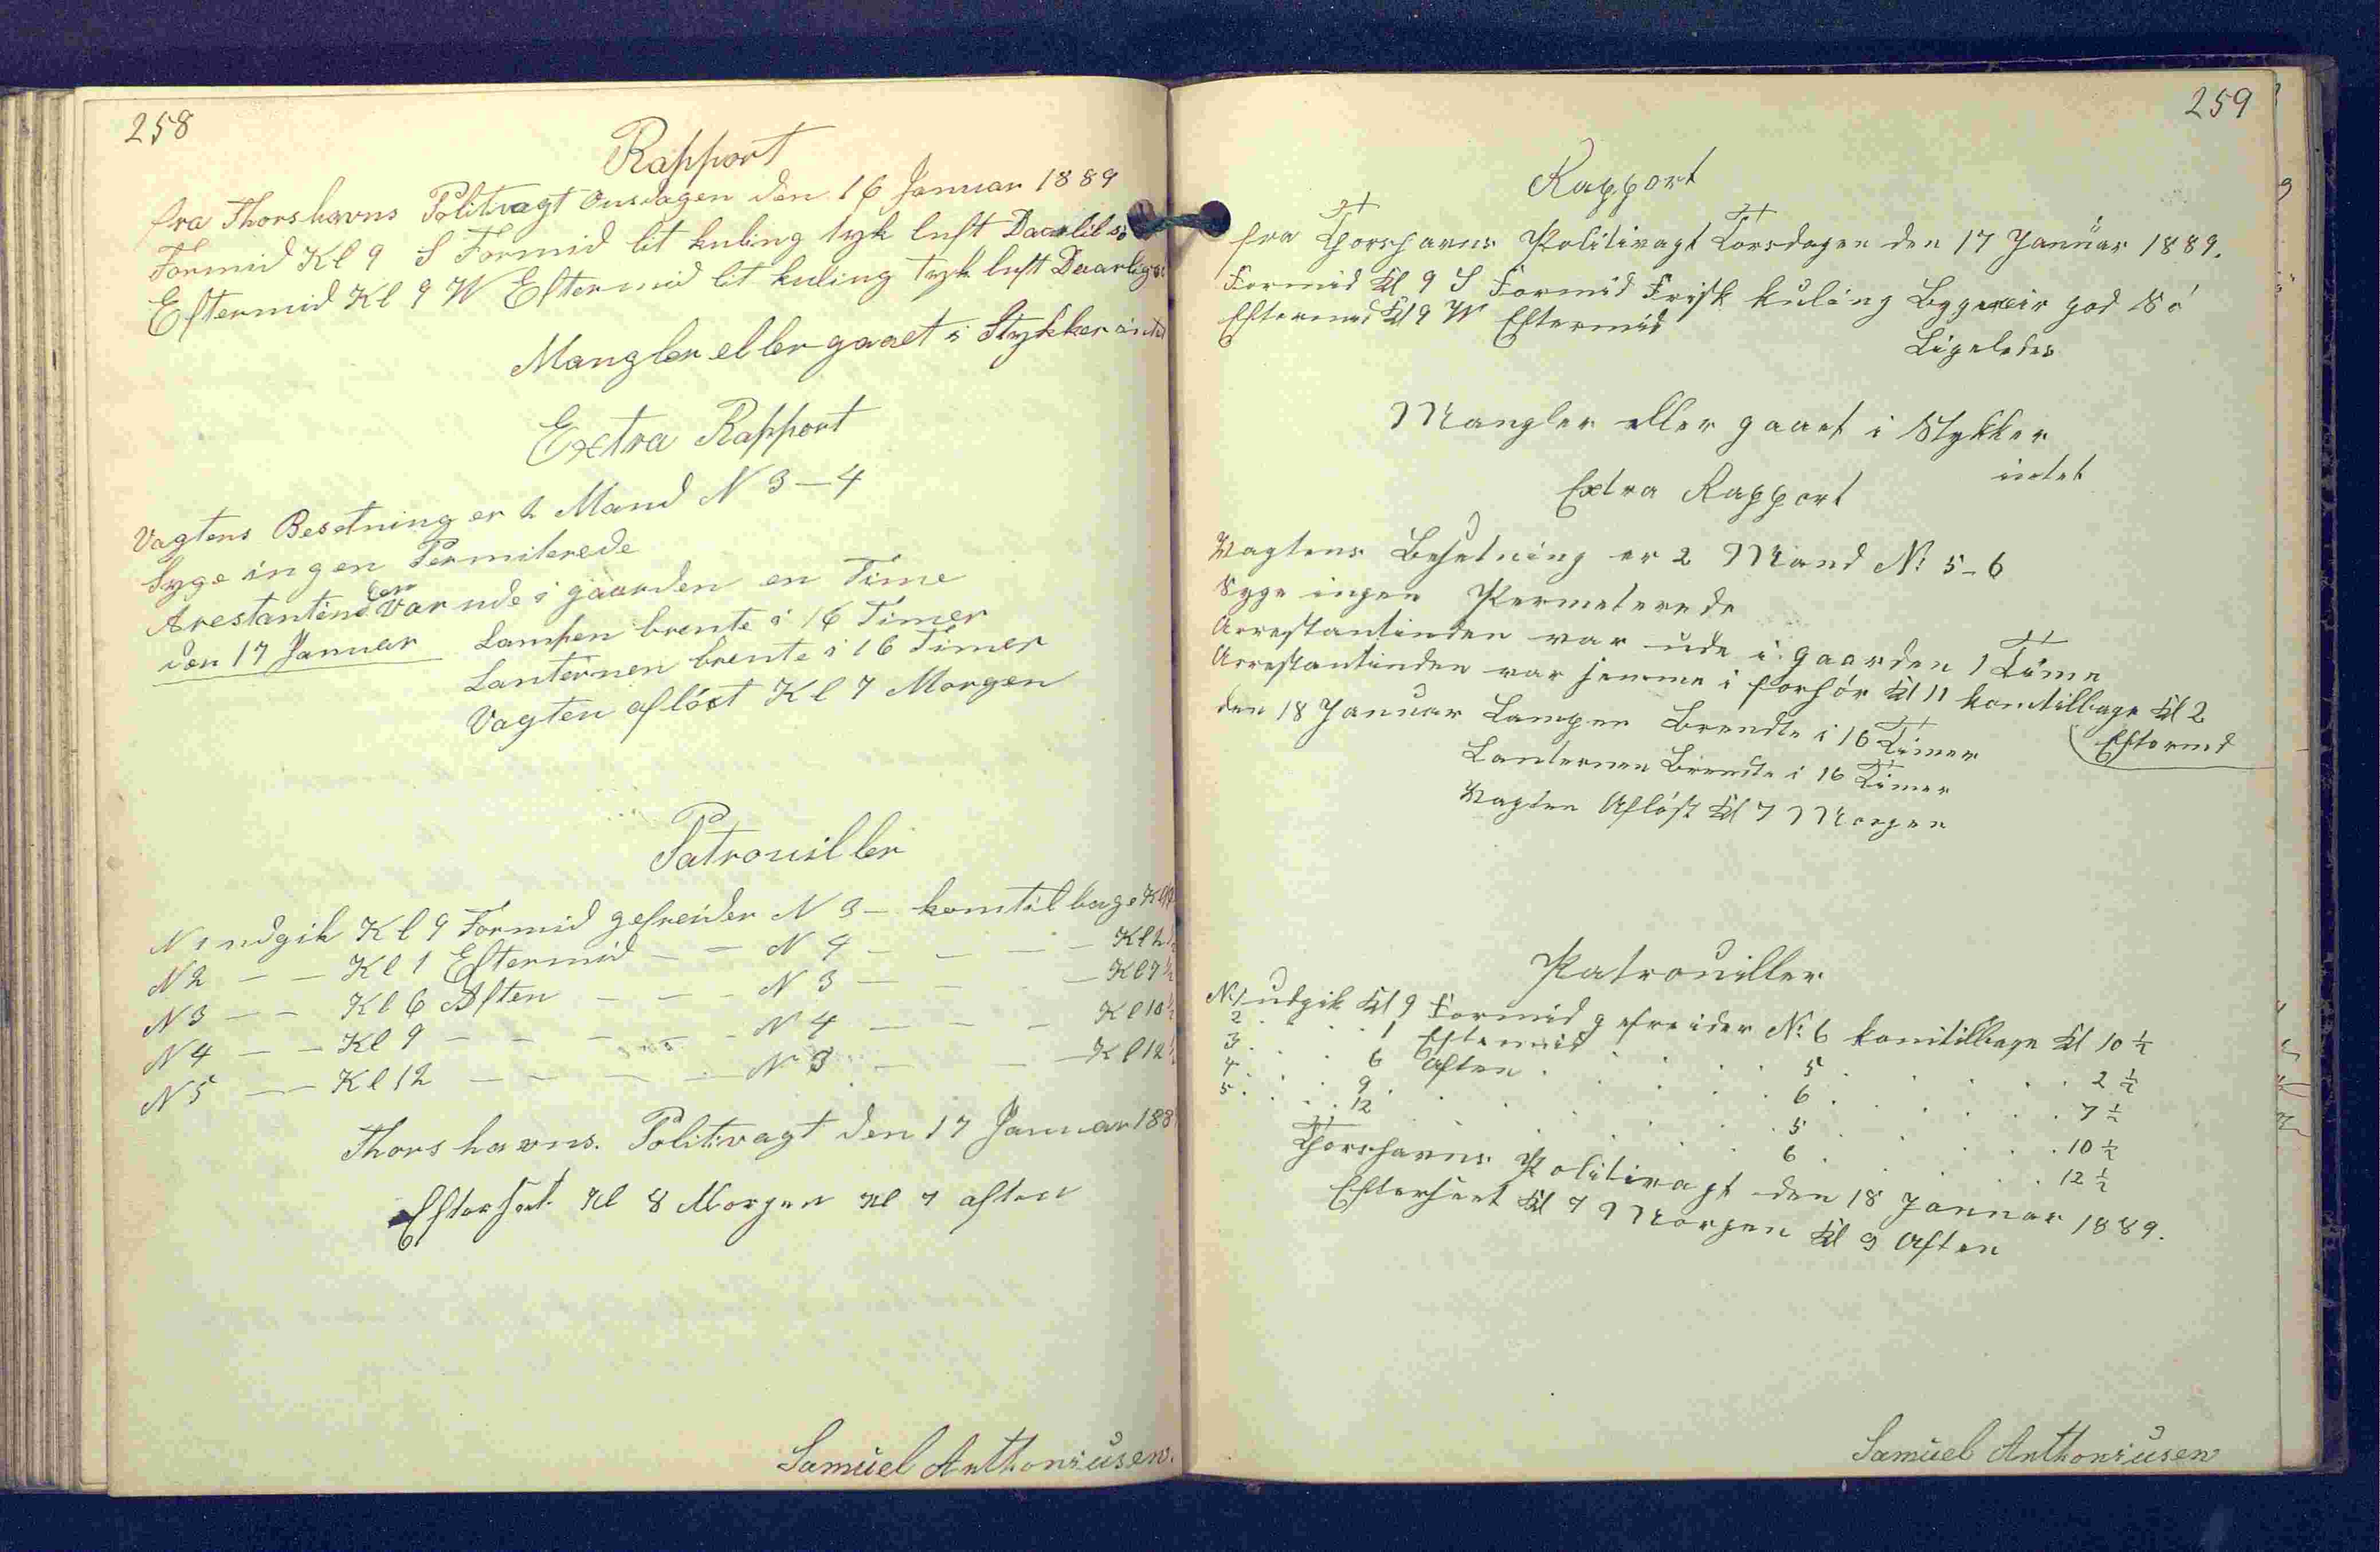 258
Rapport
fra Thorshavns Politivagt Onsdagen den 16 Januar 1889
Formid Kl 9 S Formid lit kuling tyk luft Daarlil
Eftermid Kl 9 W Eftermid lit kuling tyk luft Daarlig
Mangler eller gaaet i Stykker
Extra Rapport
Vagtens Besetning er 2 Mand N 3 - 4
Syge ingen Permiterede
Arestantinden var ude i gaarden en Time
den 17 Januar Lampen brente i 16 Timer
Lanternen brente i 16 Timer
Vagten afløst Kl 7 Morgen
Patrouiller
N 1 udgik Kl 9 Formid gefreider N 3 - komtilbage
N 2 - - Kl 1 Eftermid - - N 4 - - - Kl 2 1/2
N 3 - - Kl 6 Aften - - - N 3 - - - Kl 7 1/2
N 4 - - Kl 9 - - - - - N 4 - - - Kl 10 1/2
N 5 - - Kl 12 - - - - N 3 - - - Kl 12 1/2
Thorshavns. Politivagt den 17 Januar 188
Efterset Kl 8 Morgen Kl 7 aften
Samuel Anthoniusen.
259
Rapport
fra Thorshavns Politivagt Torsdagen den 17 Januar 1889.
Formid Kl 9 S Formid Frisk kuling Bygveir god Sö
Eftermid Kl 9 W Eftermid Ligeledes
Mangler eller gaaet i Stykker
intet
Extra Rapport
Vagtens Besetning er 2 Mand No: 5-6
Syge ingen Permeterede
Arrestantinden var ude i gaarden 1 Time
Arrestantinden var hemme i forhör Kl 11 komtilbage Kl 2
Eftermd
den 18 Januar Lampen Brendte i 16 Timer
Lanternen Brendte i 16 Timer
Vagten Afløst Kl 7 Morgen
Patrouiller
No. 1 udgik Kl 9 Formid gefreider No: 6 komtilbage Kl 10 1/2
2 . . . . 1 Eftermid . . . . 5 . . . . 2 1/2
3 . . . . 6 Aften . . . . 6 . . . . 7 1/2
4 . . . . 9 . . . . 5 . . . . 10 1/2
5 . . . . 12 . . . . 6 . . . . 12 1/2
Thorshavns Politivagt den 18 Januar 1889.
Efterseet Kl 7 Morgen Kl 9 Aften
Samuel Anthoniusen